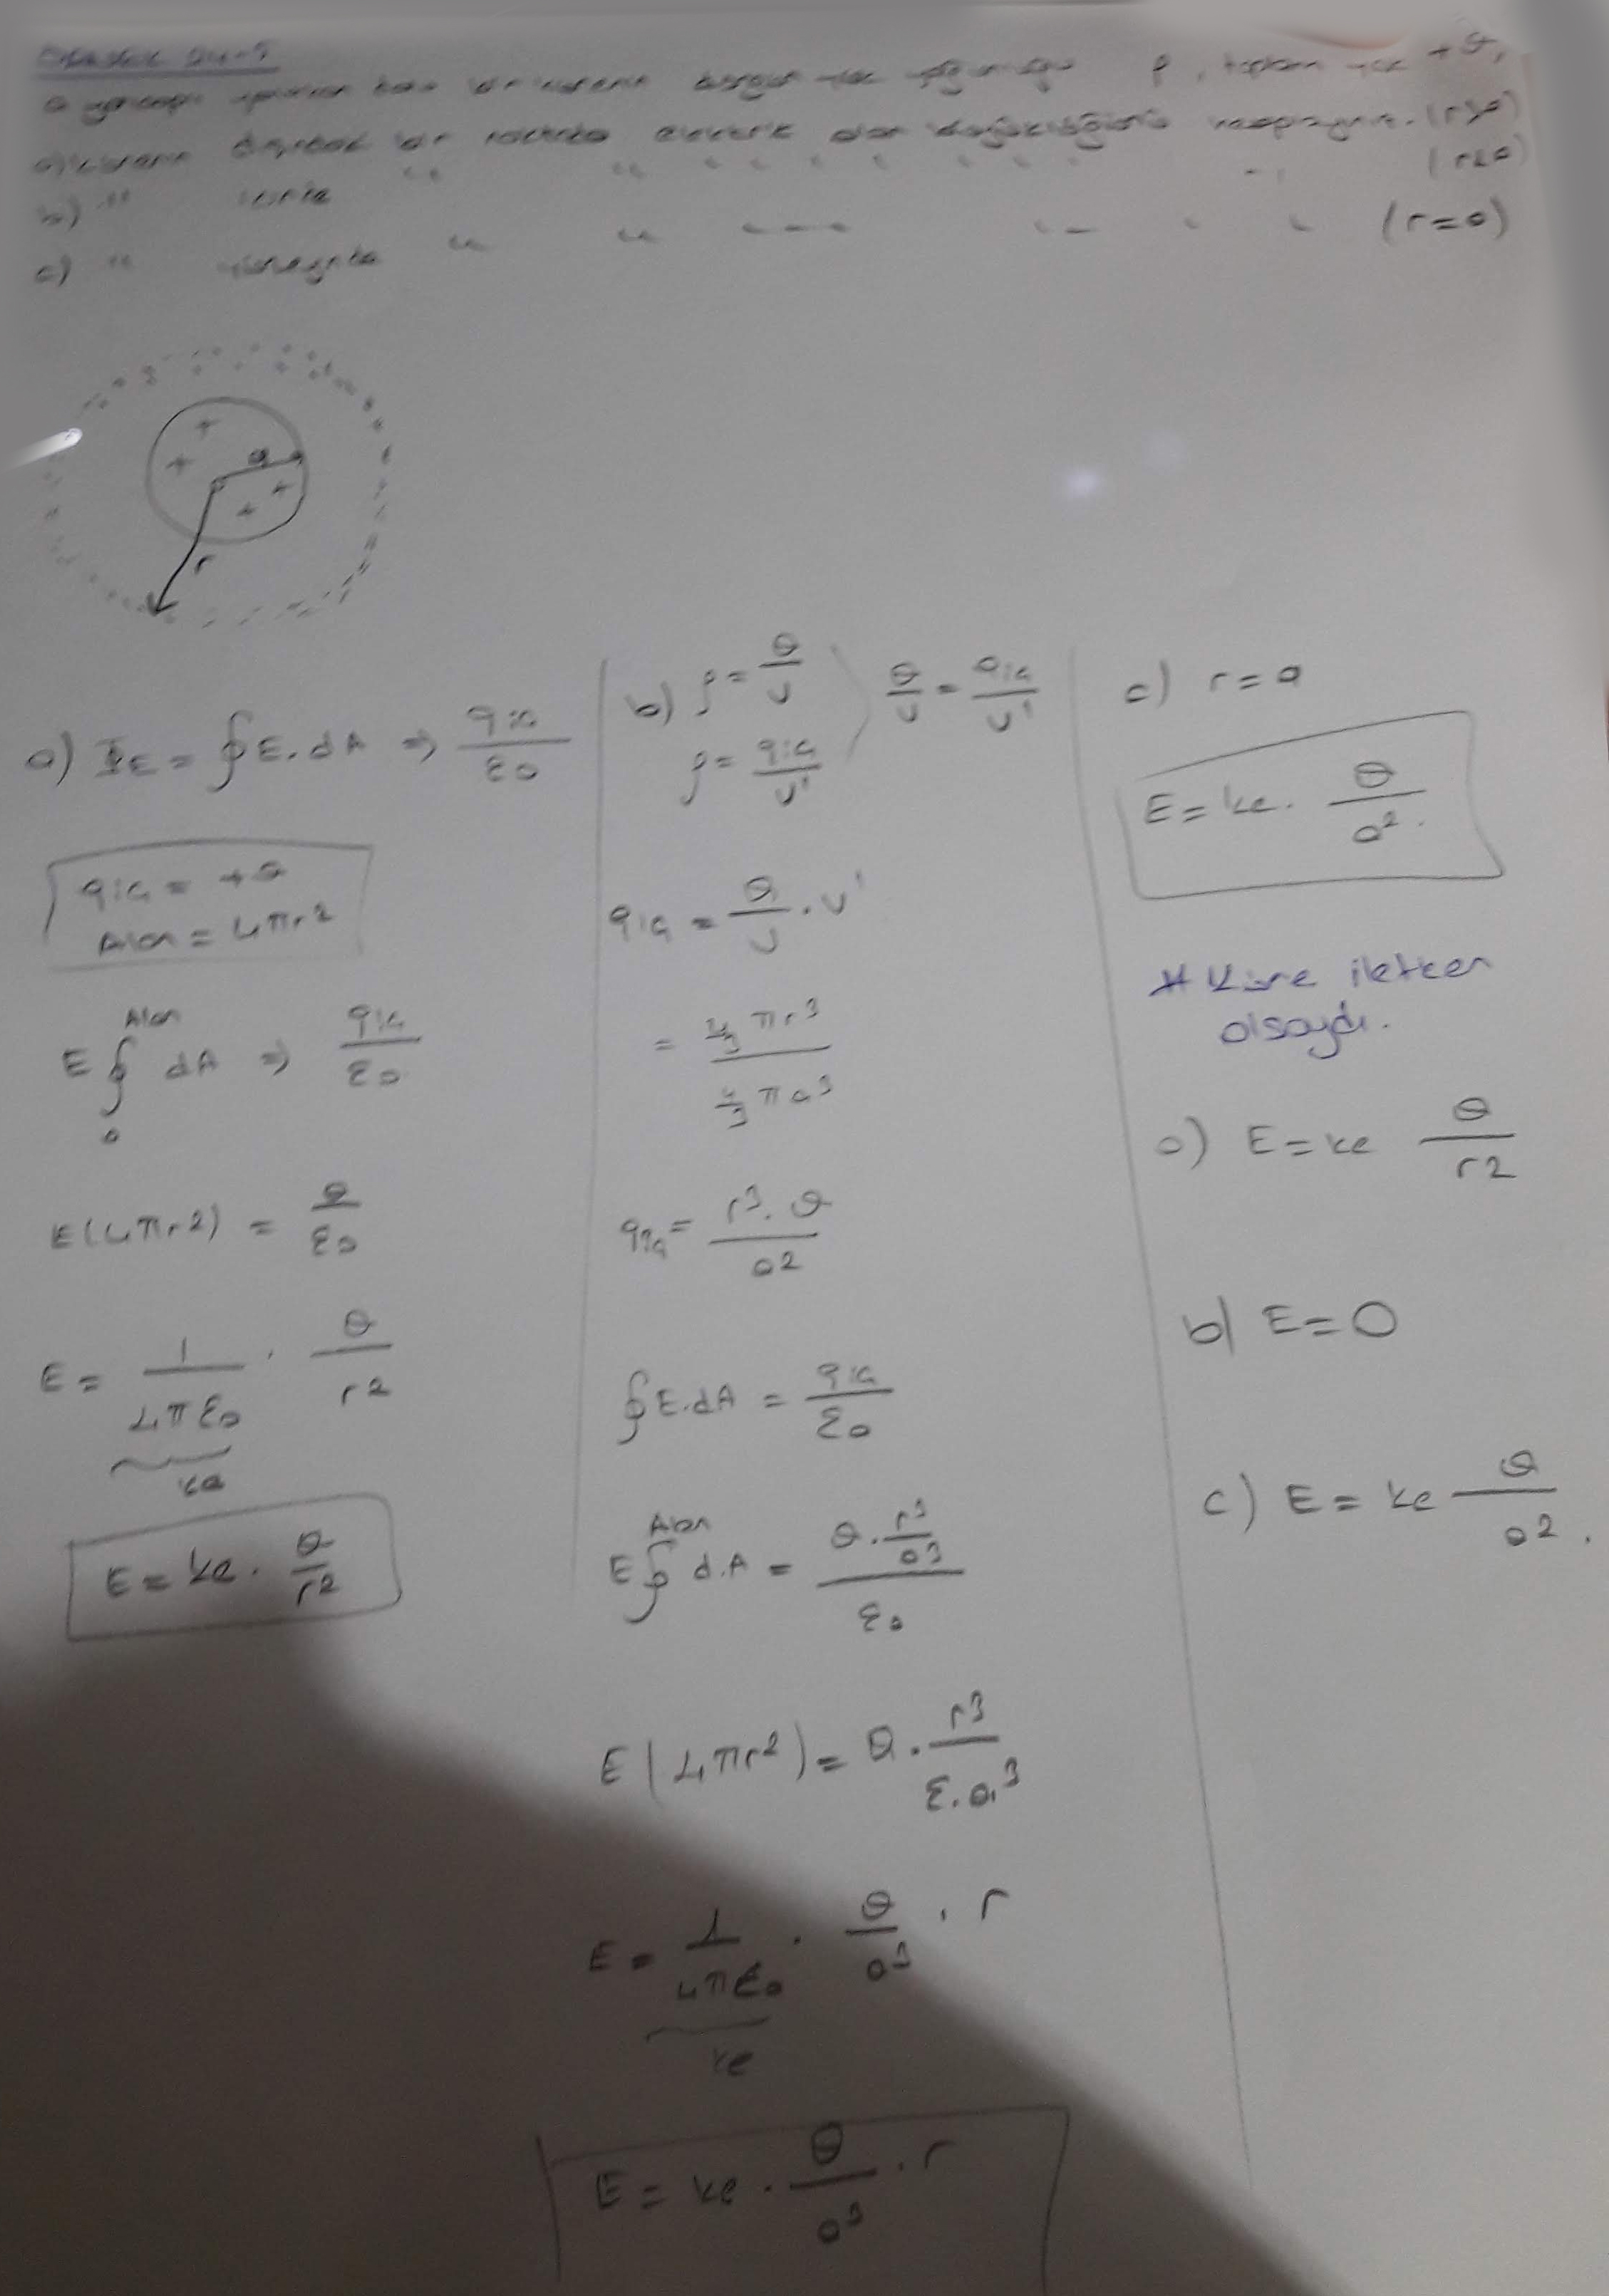 a yarıçaplı yalıtkan katı bir kürenin yük ρ, toplam yük +Q,
a) kürenin dışında bir noktada elektrik alan hesaplayınız. (r>a)
b) " içinde " " " " " " " " (r<a)
c) " yüzeyinde " " " " " (r=a)
+ + a + +
r
a) ΦE = ∮E.dA ⇒ qiç/ε0
qiç = +Q
Alan = 4πr2
E ∮ dA ⇒ qiç/ε0
Alan
0
E(4πr2) = Q/ε0
E = 1/4πε0 . Q/r2
ke
E = ke. Q/r2
b) ρ = Q/V
ρ = qiç/V'
Q/V = qiç/V'
qiç = Q/V . V'
= 4/3 πr3 / 4/3 πa3
qiç = r3.Q / a2
∮E.dA = qiç/ε0
Alan
E∮ d.A = Q. r3/a3 / ε0
E(4πr2) = Q. r3/ε.a3
E = 1/4πε0 . Q/a3 . r
ke
E = ke . Q/a3 . r
c) r = a
E = ke. Q/a2.
* Küre iletken
olsaydı.
a) E = ke Q/r2
b) E = 0
c) E = ke Q/a2.